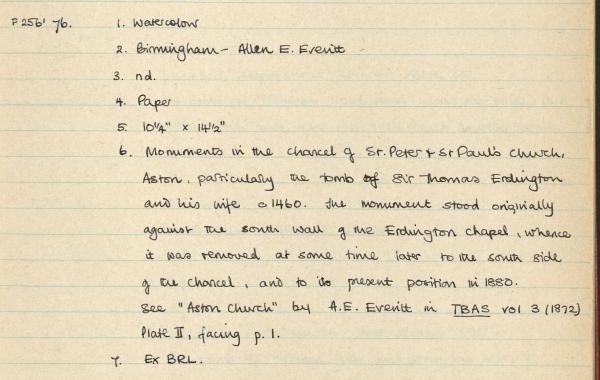 F256' 76. 1. Watercolour
2. Birmingham - Allen E. Everitt
3. nd.
4. Paper
5. 10¼" x 14½"
6. Monuments in the chancel of St. Peter & St Paul's Church,
Aston, particularly the tomb of Sir Thomas Erdington
and his wife c1460. The monument stood originally
against the south wall of the Erdington Chapel, whence
it was removed at some time later to the south side
of the chancel, and to its present position in 1880.
See "Aston Church" by A.E. Everitt in TBAS vol 3 (1872)
Plate II, facing p. 1.
7. Ex BRL.